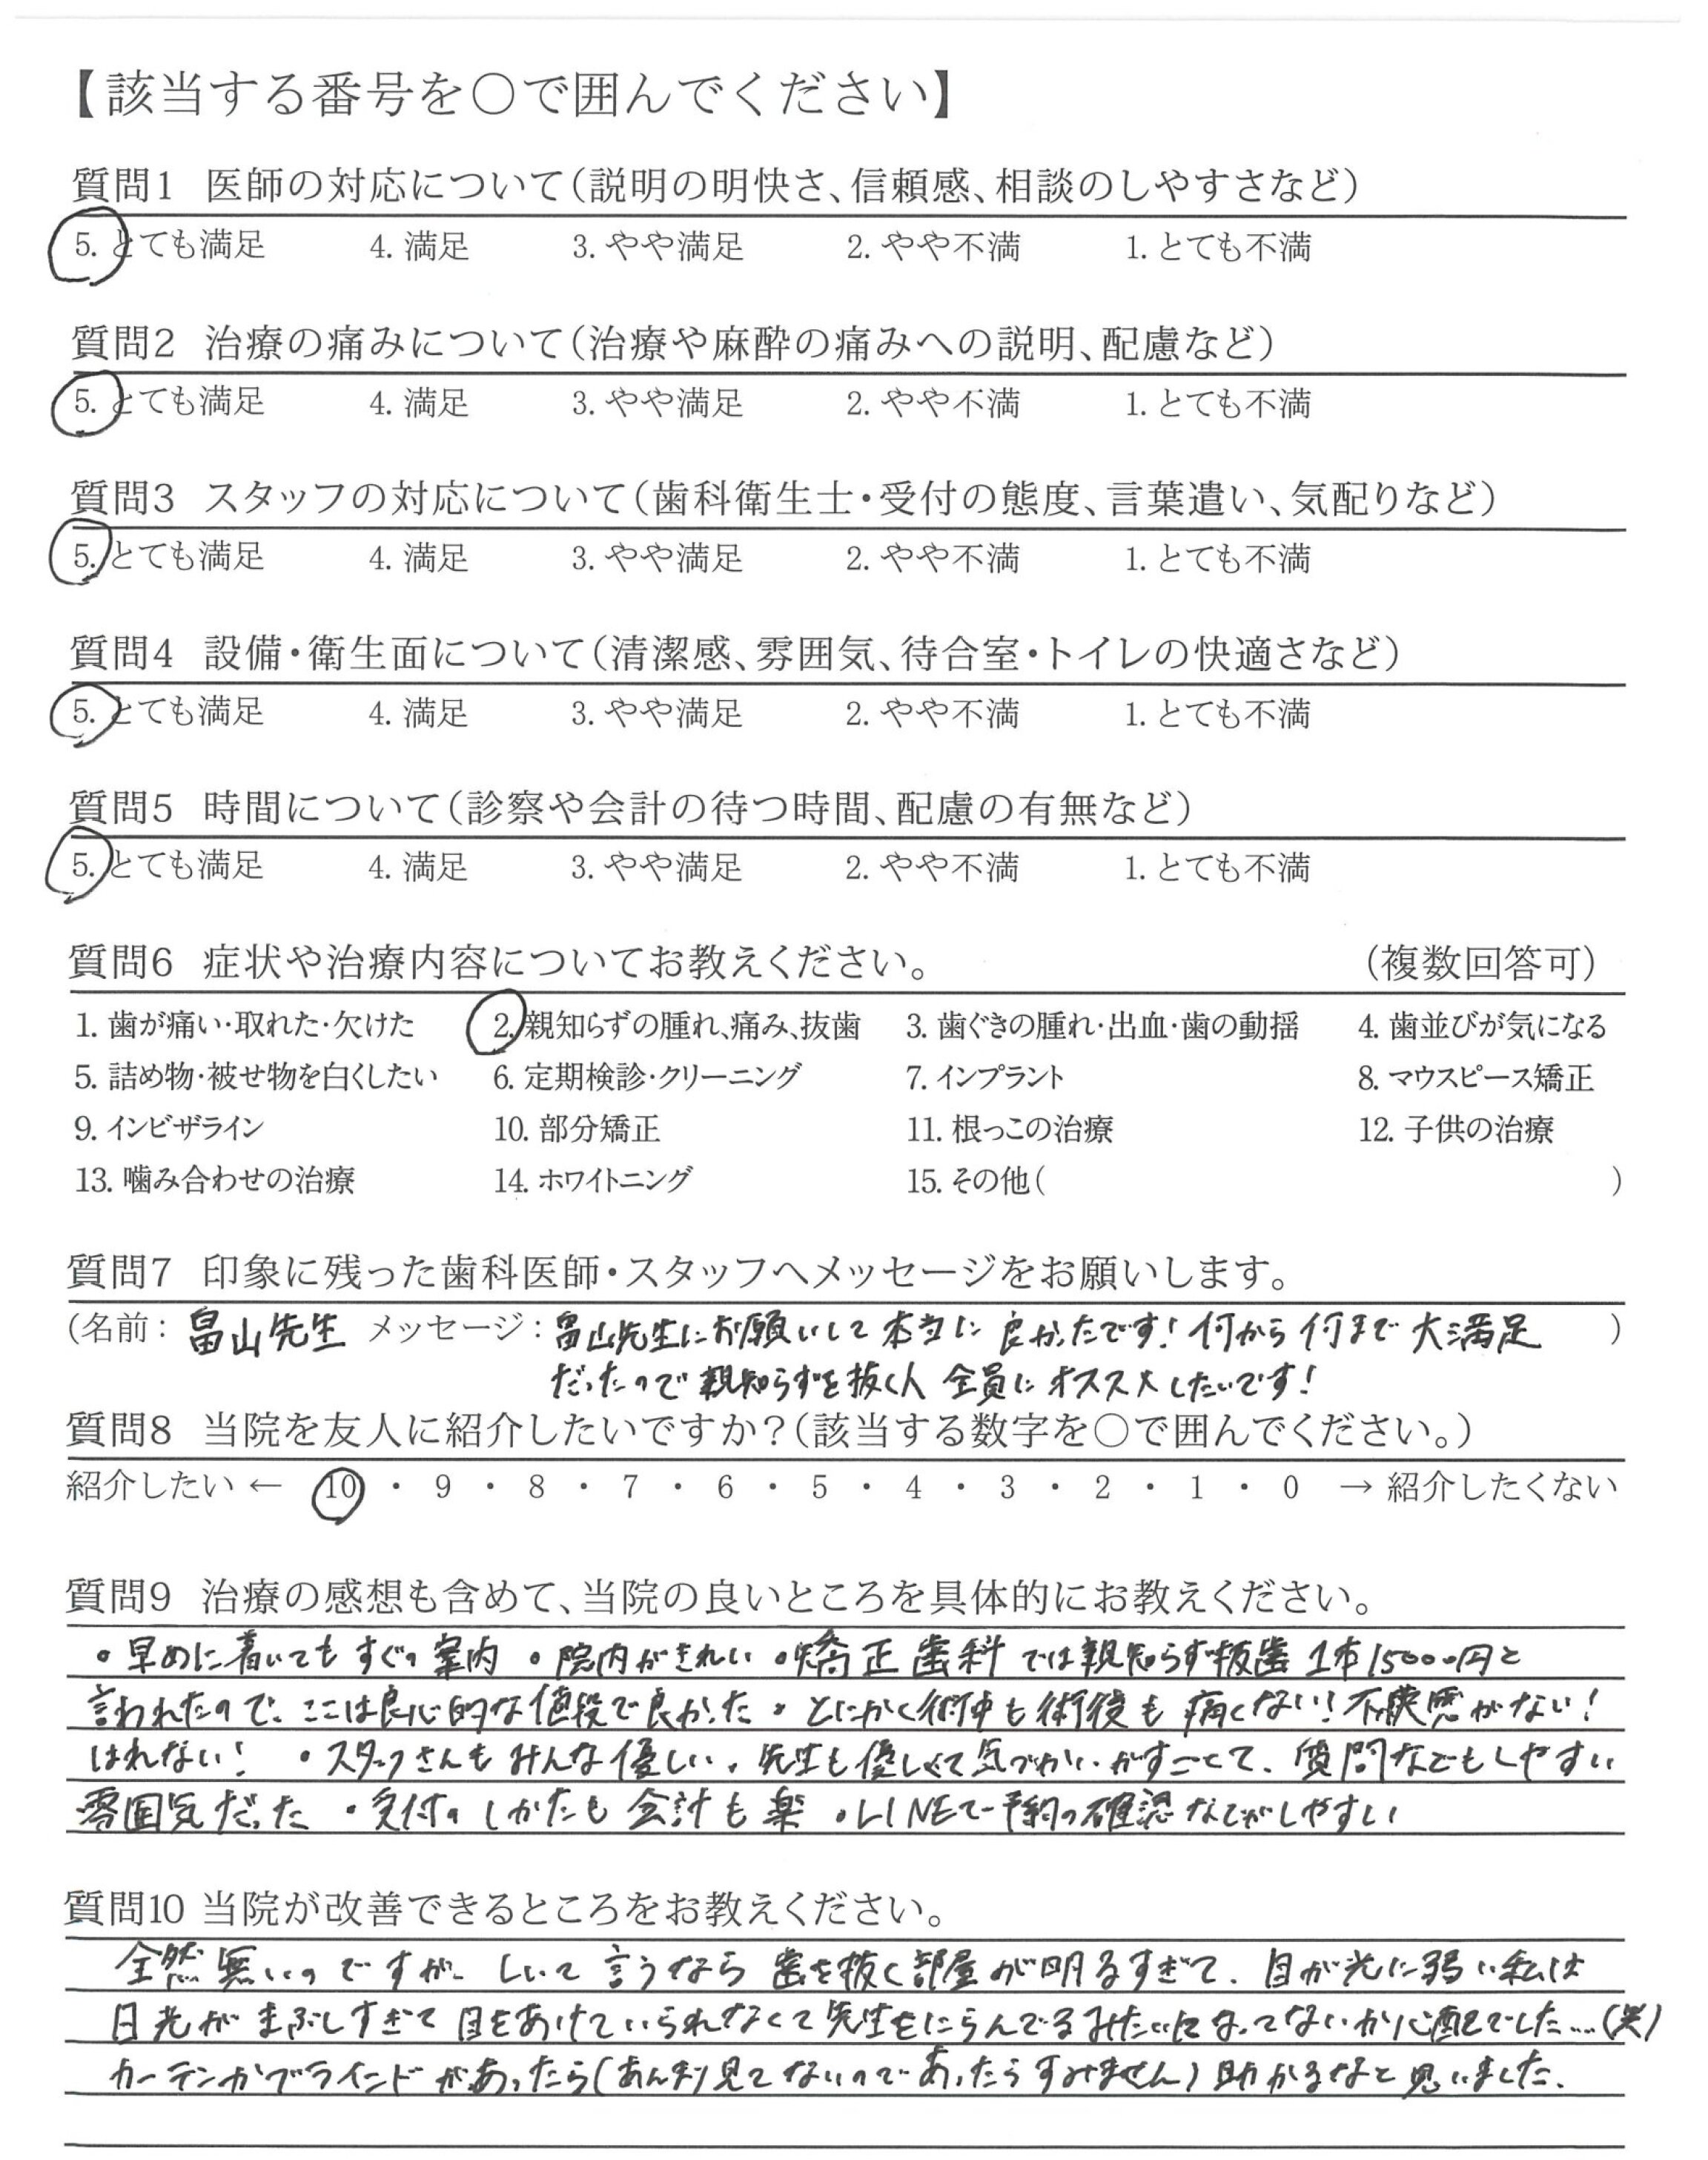 【該当する番号を〇で囲んでください】
質問1 医師の対応について（説明の明快さ、信頼感、相談のしやすさなど）
5. とても満足 4. 満足 3. やや満足 2. やや不満 1. とても不満
質問2 治療の痛みについて（治療や麻酔の痛みへの説明、配慮など）
5. とても満足 4. 満足 3. やや満足 2. やや不満 1. とても不満
質問3 スタッフの対応について（歯科衛生士・受付の態度、言葉遣い、気配りなど）
5. とても満足 4. 満足 3. やや満足 2. やや不満 1. とても不満
質問4 設備・衛生面について（清潔感、雰囲気、待合室・トイレの快適さなど）
5. とても満足 4. 満足 3. やや満足 2. やや不満 1. とても不満
質問5 時間について（診察や会計の待つ時間、配慮の有無など）
5. とても満足 4. 満足 3. やや満足 2. やや不満 1. とても不満
質問6 症状や治療内容についてお教えください。 （複数回答可）
1. 歯が痛い・取れた・欠けた 2. 親知らずの腫れ、痛み、抜歯 3. 歯ぐきの腫れ・出血・歯の動揺 4. 歯並びが気になる
5. 詰め物・被せ物を白くしたい 6. 定期検診・クリーニング 7. インプラント 8. マウスピース矯正
9. インビザライン 10. 部分矯正 11. 根っこの治療 12. 子供の治療
13. 噛み合わせの治療 14. ホワイトニング 15. その他（ ）
質問7 印象に残った歯科医師・スタッフへメッセージをお願いします。
（名前：畠山先生 メッセージ：畠山先生にお願いして本当に良かったです！何から何まで大満足 ）
だったので親知らずを抜く人全員にオススメしたいです！
質問8 当院を友人に紹介したいですか？（該当する数字を〇で囲んでください。）
紹介したい ← 10 ・ 9 ・ 8 ・ 7 ・ 6 ・ 5 ・ 4 ・ 3 ・ 2 ・ 1 ・ 0 → 紹介したくない
質問9 治療の感想も含めて、当院の良いところを具体的にお教えください。
・早めに着いてもすぐの案内 ・院内がきれい ・矯正歯科では親知らず抜歯1本15000円と
言われたので、ここは良心的な値段で良かった ・とにかく術中も術後も痛くない！不快感がない！
はれない！ ・スタッフさんもみんな優しい。先生も優しくて気づかいがすごくて、質問などもしやすい
雰囲気だった ・受付のしかたも会計も楽 ・LINEで予約の確認などがしやすい
質問10 当院が改善できるところをお教えください。
全然無いのですが、しいて言うなら歯を抜く部屋が明るすぎて、目が光に弱い私は
日光がまぶしすぎて目をあけていられなくて先生をにらんでるみたいになってないか心配でした…（笑）
カーテンかブラインドがあったら（あんまり見てないのであったらすみません）助かるなと思いました。